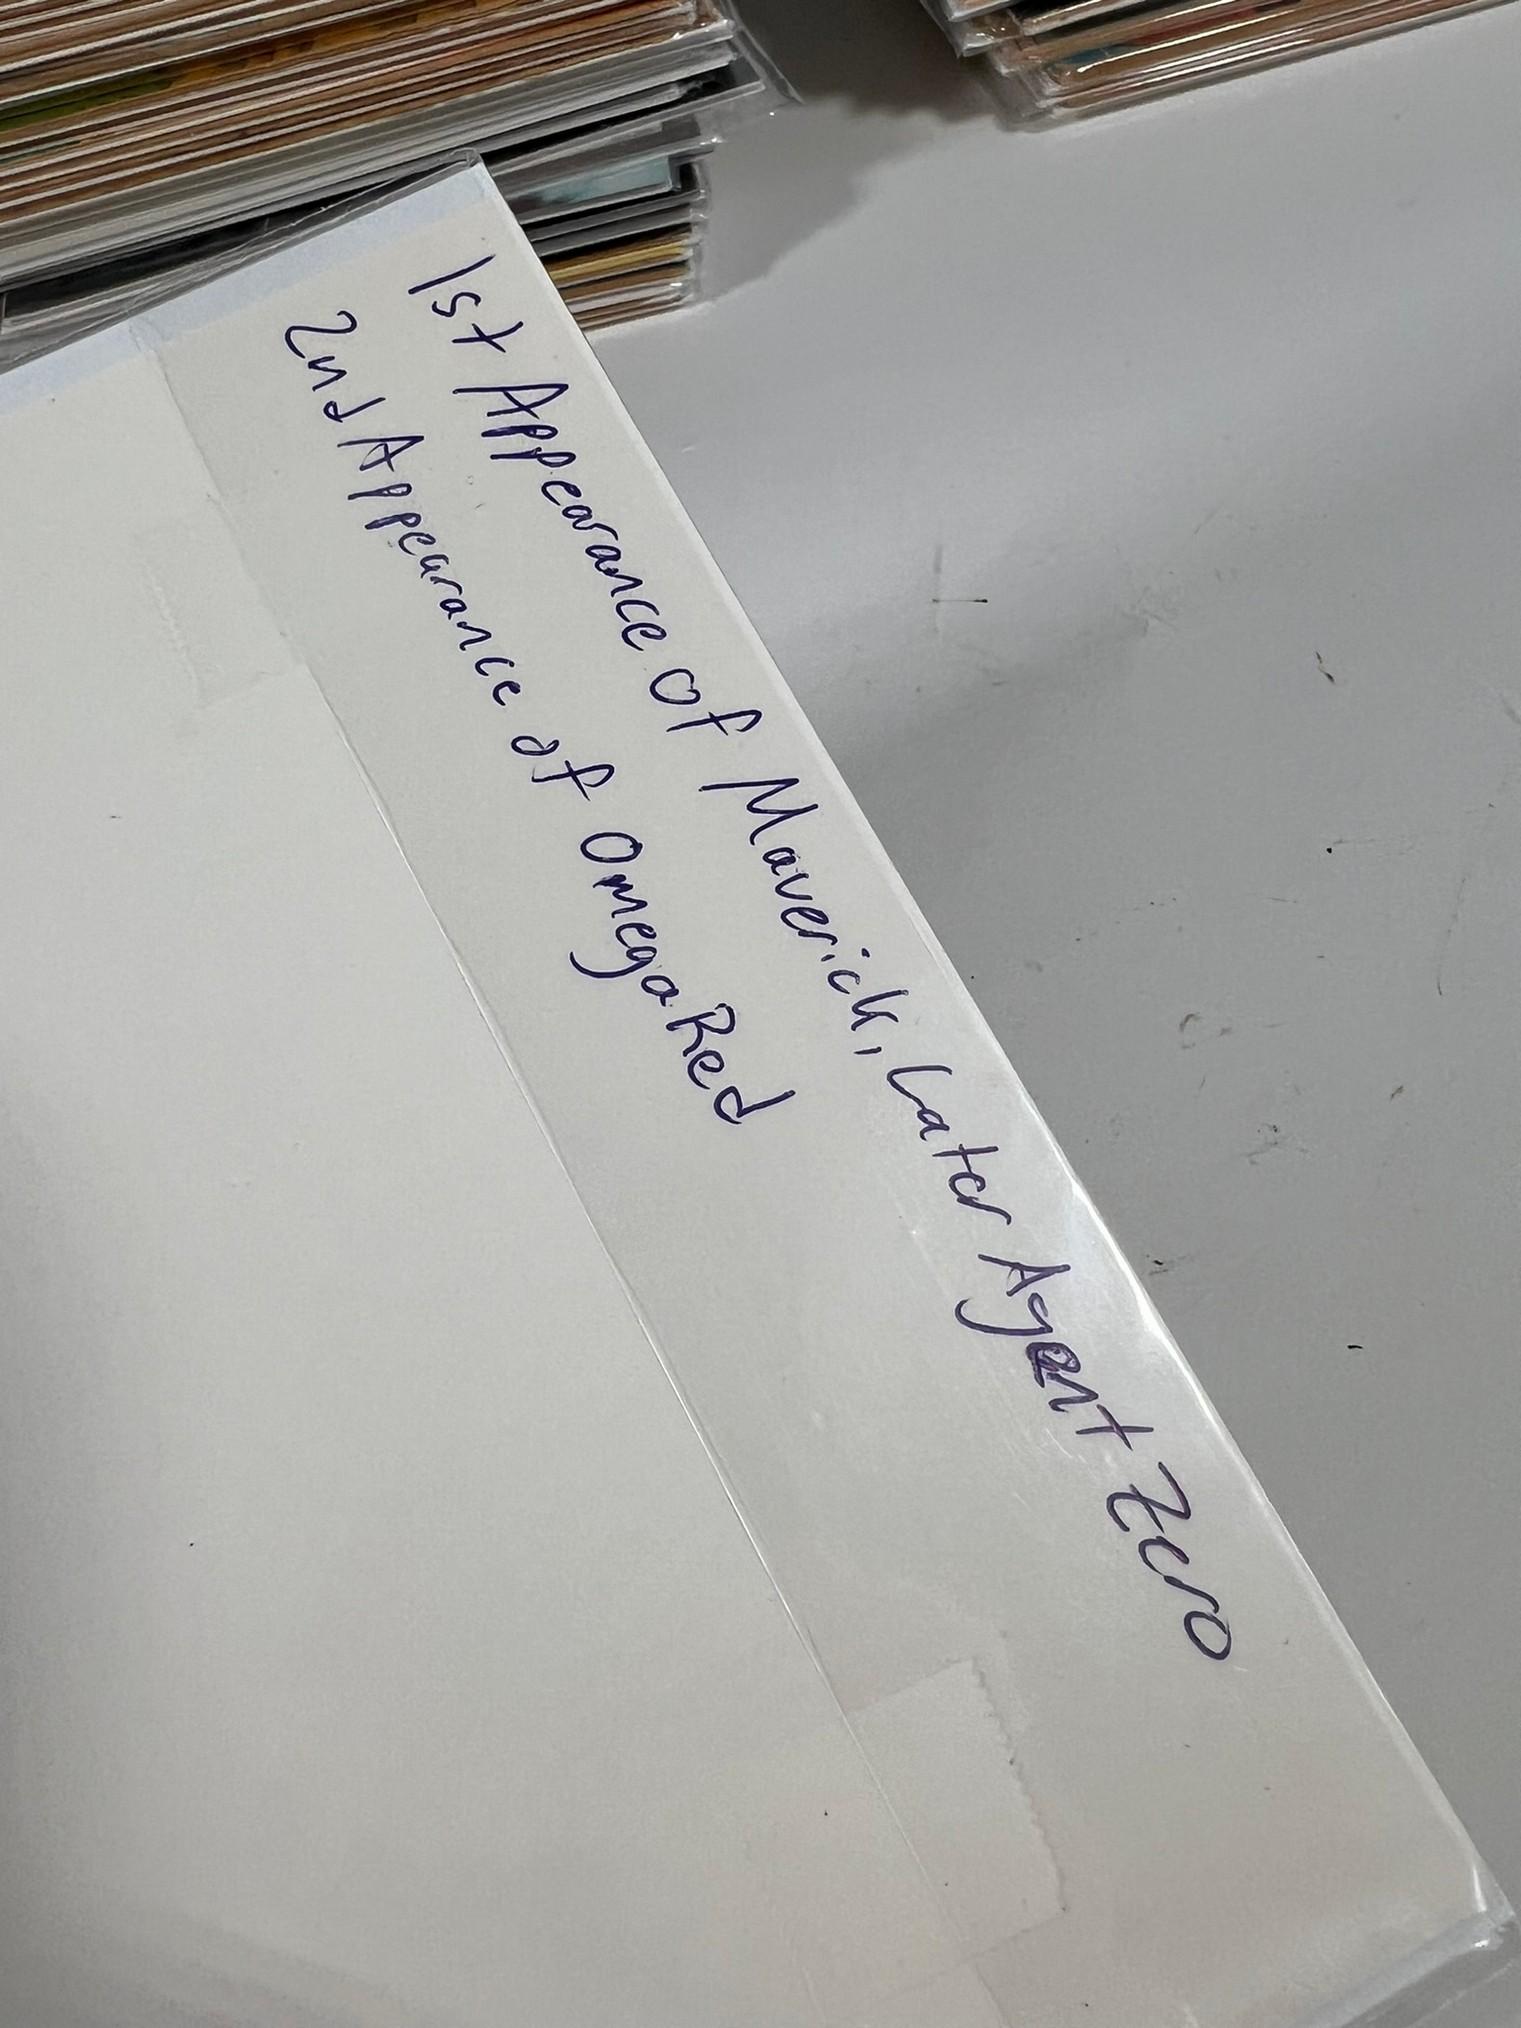 1st Appearance of Maverick, Later Agent Zero
2nd Appearance of Omega Red